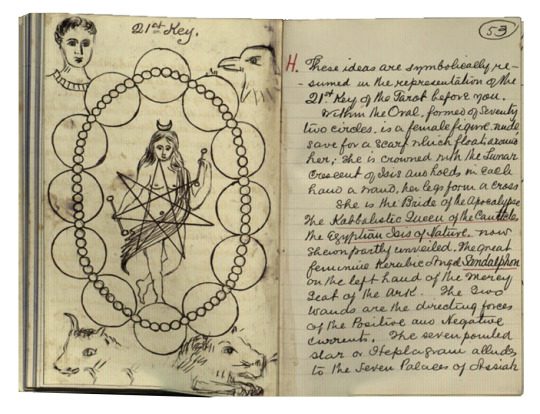 21st Key.
53
H. These ideas are symbolically re-
-sumed in the representation of the
21st Key of the Tarot before you.
Within the Oval, formed of Seventy
two circles, is a female figure, nude,
save for a scarf which floats round
her; she is crowned with the Lunar
Crescent of Isis and holds in each
hand a wand, her legs form a cross
She is the Bride of the Apocalypse
the Kabbalistic Queen of the Canticles
the Egyptian Isis of Nature, now
shewn partly unveiled, the great
feminine Kerubic Angel Sandalphon
on the left hand of the Mercy
Seat of the Ark. The two
wands are the directing forces
of the Positive and Negative
currents. The seven pointed
star or Heptagram alludes
to the Seven Palaces of Assiah